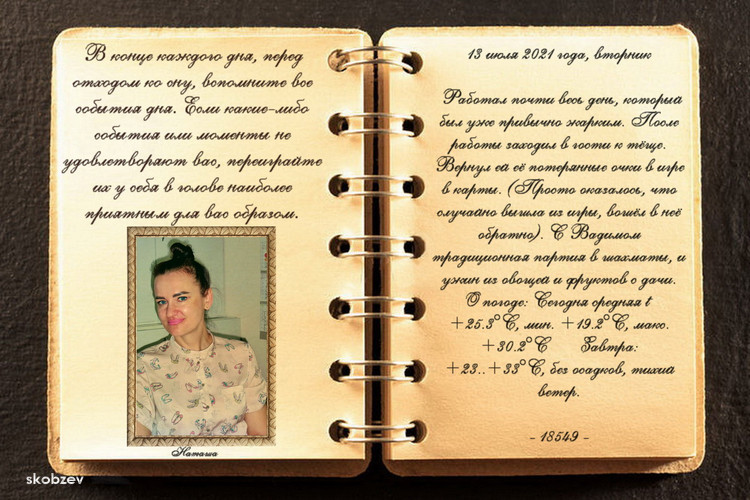 В конце каждого дня, перед
отходом ко сну, вспомните все
события дня. Если какие-либо
события или моменты не
удовлетворяют вас, переиграйте
их у себя в голове наиболее
приятным для вас образом.
Наташа
13 июля 2021 года, вторник
Работал почти весь день, который
был уже привычно жарким. После
работы заходил в гости к тёще.
Вернул ей её потерянные очки в игре
в карты. (Просто оказалось, что
случайно вышла из игры, вошёл в неё
обратно). С Вадимом
традиционная партия в шахматы, и
ужин из овощей и фруктов с дачи.
О погоде: Сегодня средняя t
+25.3°С, мин. +19.2°С, макс.
+30.2°С Завтра:
+23..+33°С, без осадков, тихий
ветер.
- 18549 -
skobzev